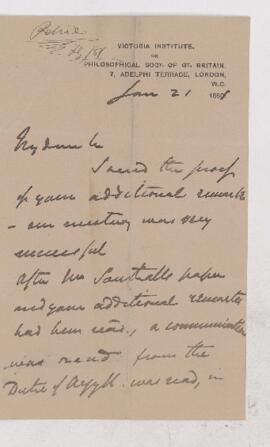 Petrie
VICTORIA INSTITUTE,
OR
PHILOSOPHICAL SOCY. OF GT. BRITAIN.
7, ADELPHI TERRACE, LONDON,
W.C.
Jan 21 188
My dear Sir
I send the proof
of your additional remarks
- our meeting was very
successful
After Mr Southalls paper
and your additional remarks
had been read, a communication
was from the
Duke of Argyll was read, in